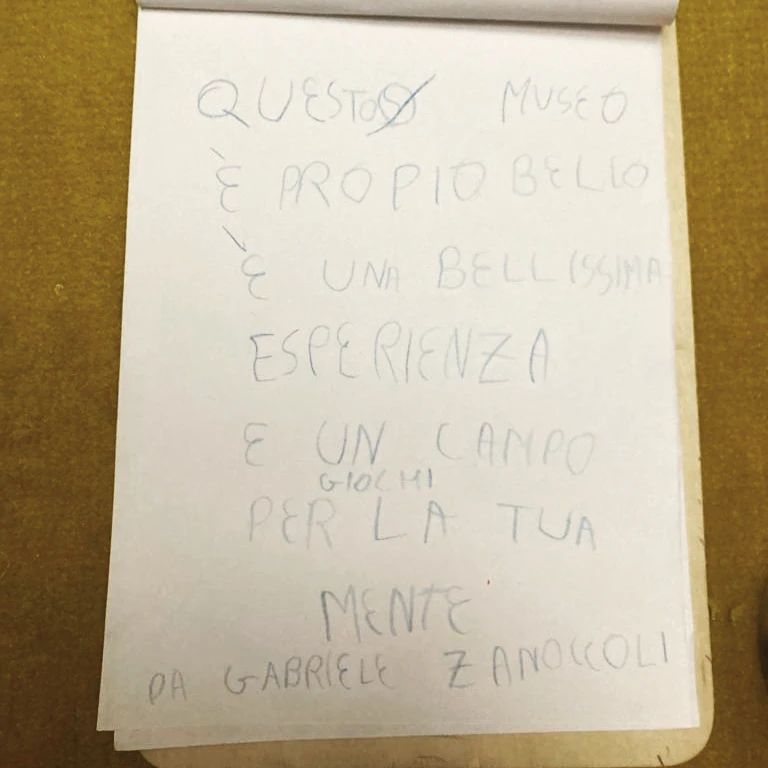 QUESTO MUSEO
È PROPIO BELLO
È UNA BELLISSIMA
ESPERIENZA
E UN CAMPO
GIOCHI
PER LA TUA
MENTE
DA GABRIELE ZANOCCOLI